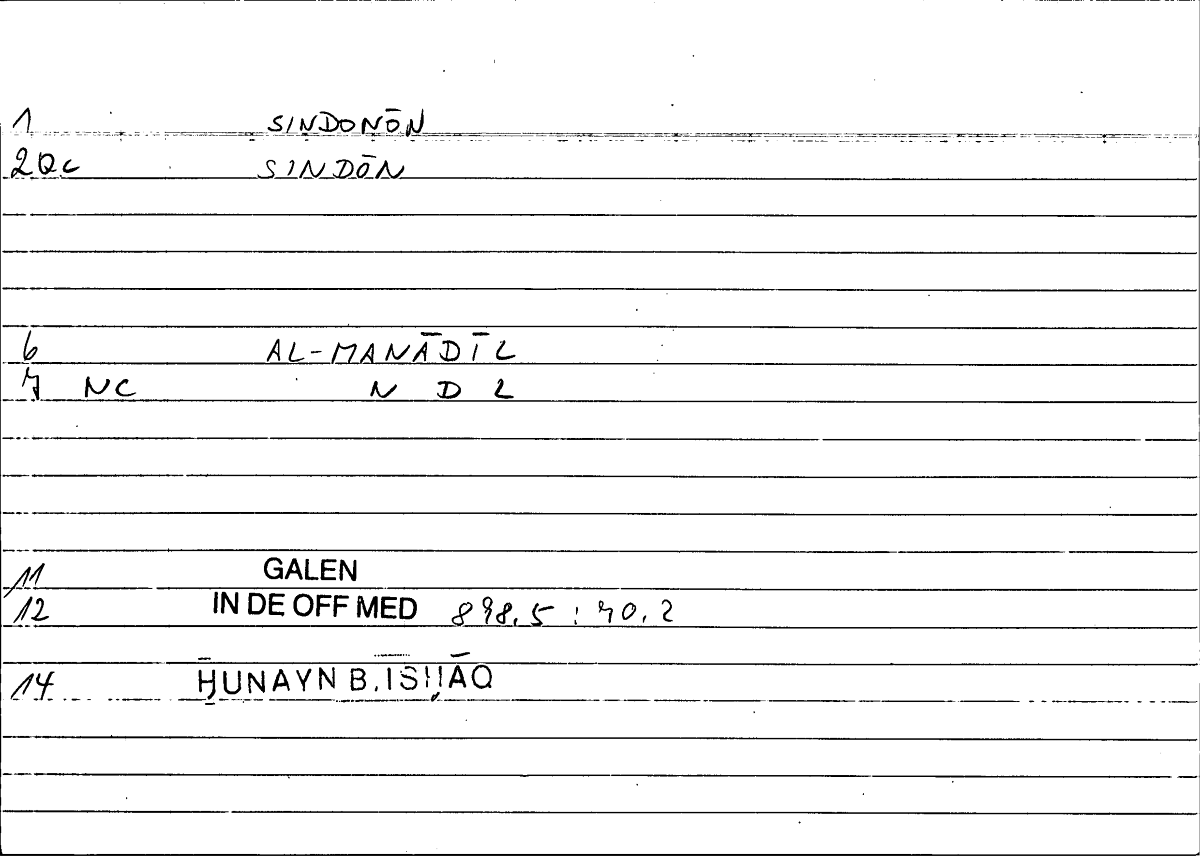 1 SINDONŌN
2QC SINDŌN
6 AL-MANĀDĪL
7 NC N D L
11 GALEN
12 IN DE OFF MED 898.5 : 70.2
14 ḤUNAYN B. ISḤĀQ